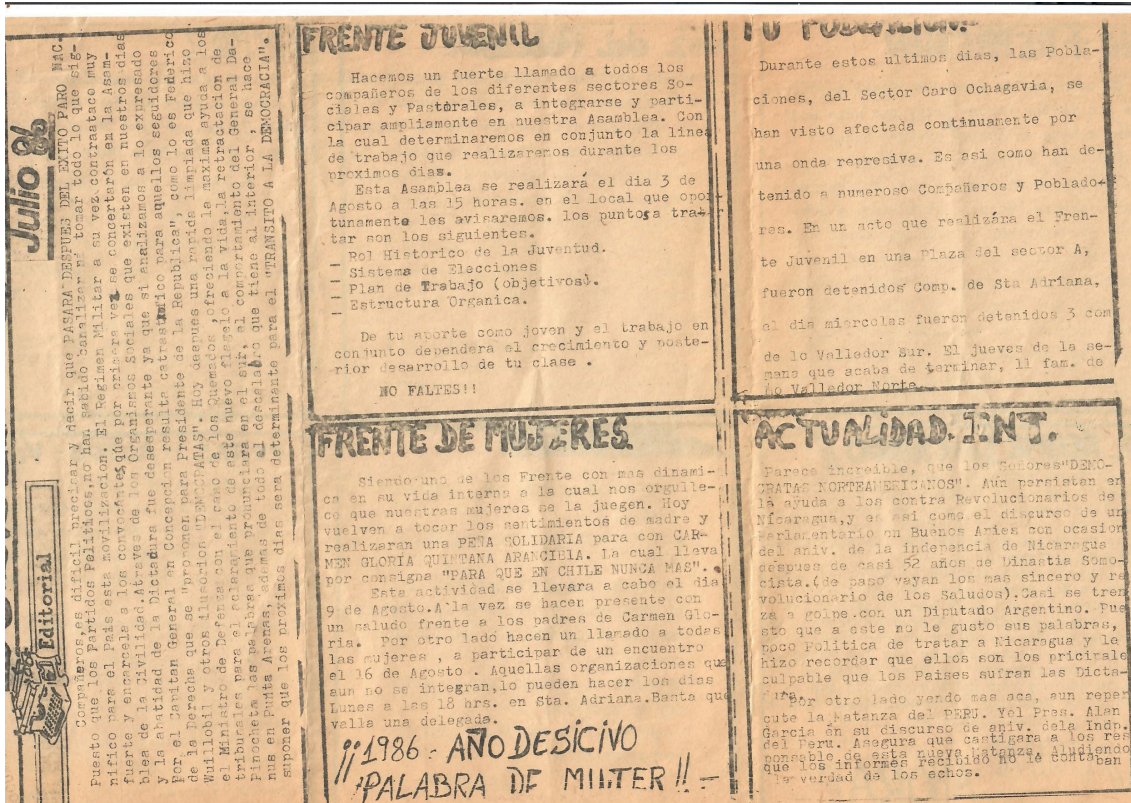 Julio 86
Editorial
Compañeros, es dificil precisar y decir que PASARA DESPUES DEL EXITO PARO NAC.
Puesto que los Partidos Politicos, no han sabido canalizar ni tomar todo lo que sig-
nifico para el Pais esta movilizacion. El Regimen Militar a su vez contraatace muy
fuerte y encarcela a los convocantes, qúe por primera vez se concertarón en la Asam-
blea de la Civilidad. Atraves de los Organismos Sociales que existen en nuestros dias
y la apatidad de la Dictadura fue desesperante ya que si analizamos a lo expresado
Por el Capitan General en Concepcion resulta catrastofico para aquellos seguidores
de la Derecha que se "proponen para Presidente de la Republica", como lo es Federico
Willolbil y otros ilusorios "DEMOCRATAS". Hoy despues una rapida limpiada que hizo
el Ministo de Defensa con el caso de los Quemados, ofreciendo la maxima ayuda a los
tribunales para el aclaramiento de este nuevo flagelo a la vida, la retractacion de
Pinocheta las palabras que pronunciara en el sur, el comportamiento del General Da-
nus en Punta Arenas, ademas de todo el descalabro que tiene al interior, se hace
suponer que los proximos dias sera determinante para el "TRANSITO A LA DEMOCRACIA".
FRENTE JUVENIL
Hacemos un fuerte llamado a todos los
compañeros de los diferentes sectores So-
ciales y Pastorales, a integrarse y parti-
cipar ampliamente en nuestra Asamblea. Con
la cual determinaremos en conjunto la linea
de trabajo que realizaremos durante los
proximos dias.
Esta Asamblea se realizará el dia 3 de
Agosto a las 15 horas. en el local que opor
tunamente les avisaremos. los puntos a tra
tar son los siguientes.
- Rol Historico de la Juventud.
- Sistema de Elecciones
- Plan de Trabajo (objetivos).
- Estructura Organica.
De tu aporte como joven y el trabajo en
conjunto dependera el crecimiento y poste-
rior desarrollo de tu clase .
NO FALTES!!
FRENTE DE MUJERES
Siendo uno de los Frente con mas dinami-
ca en su vida interna a la cual nos orgulle-
ce que nuestras mujeres se la juegen. Hoy
vuelven a tocar los sentimientos de madre y
realizaran una PEÑA SOLIDARIA para con CAR-
MEN GLORIA QUINTANA ARANCIBIA. La cual lleva
por consigna "PARA QUE EN CHILE NUNCA MAS".
Esta actividad se llevara a cabo el dia
9 de Agosto. A la vez se hacen presente con
un saludo frente a los padres de Carmen Glo-
ria. Por otro lado hacen un llamado a todas
las mujeres , a participar de un encuentro
el 16 de Agosto . Aquellas organizaciones que
aun no se integran, lo pueden hacer los dias
Lunes a las 18 hrs. en Sta. Adriana. Basta que
valla una delegada.
¡¡1986 - AÑO DESICIVO
PALABRA DE MILITER!! -
TU POBLACION.
Durante estos ultimos dias, las Pobla-
ciones, del Sector Caro Ochagavia, se
han visto afectada continuamente por
una onda represiva. Es asi como han de-
tenido a numeroso Compañeros y Poblado-
res. En un acto que realizára el Fren-
te Juvenil en una Plaza del sector A,
fueron detenidos Comp. de Sta Adriana,
al dia miercoles fueron detenidos 3 com
de lo Vallador Sur. El jueves de la se-
mana que acaba de terminar, 11 fam. de
Lo Vallador Norte.
ACTUALIDAD. INT.
Parece increible, que los Señores "DEMO-
CRATAS NORTEAMERICANOS". Aun persistan en
la ayuda a los contra Revolucionarios de
Nicaragua, y es asi como el discurso de un
Parlamentario en Buenos Aries con ocasion
del aniv. de la indepencia de Nicaragua
despues de casi 52 años de Dinastia Somo-
cista. (de paso vayan los mas sincero y re
volucionario de los Saludos). Casi se tren
za a golpe. con un Diputado Argentino. Pue
sto que a este no le gusto sus palabras,
poco Politica de tratar a Nicaragua y le
hizo recordar que ellos son los pricirale
culpable que los Paises sufran las Dicta-
dura.
Por otro lado yendo mas aca, aun reper
cute la Matanza del PERU. Y el Pres. Alan
Garcia en su discurso de aniv. dela Indp.
del Peru. Asegura que castigara a los res
ponsable de esta nueva Matanza, Aludiendo
que los informes recibido no le contaban
la verdad de los echos.